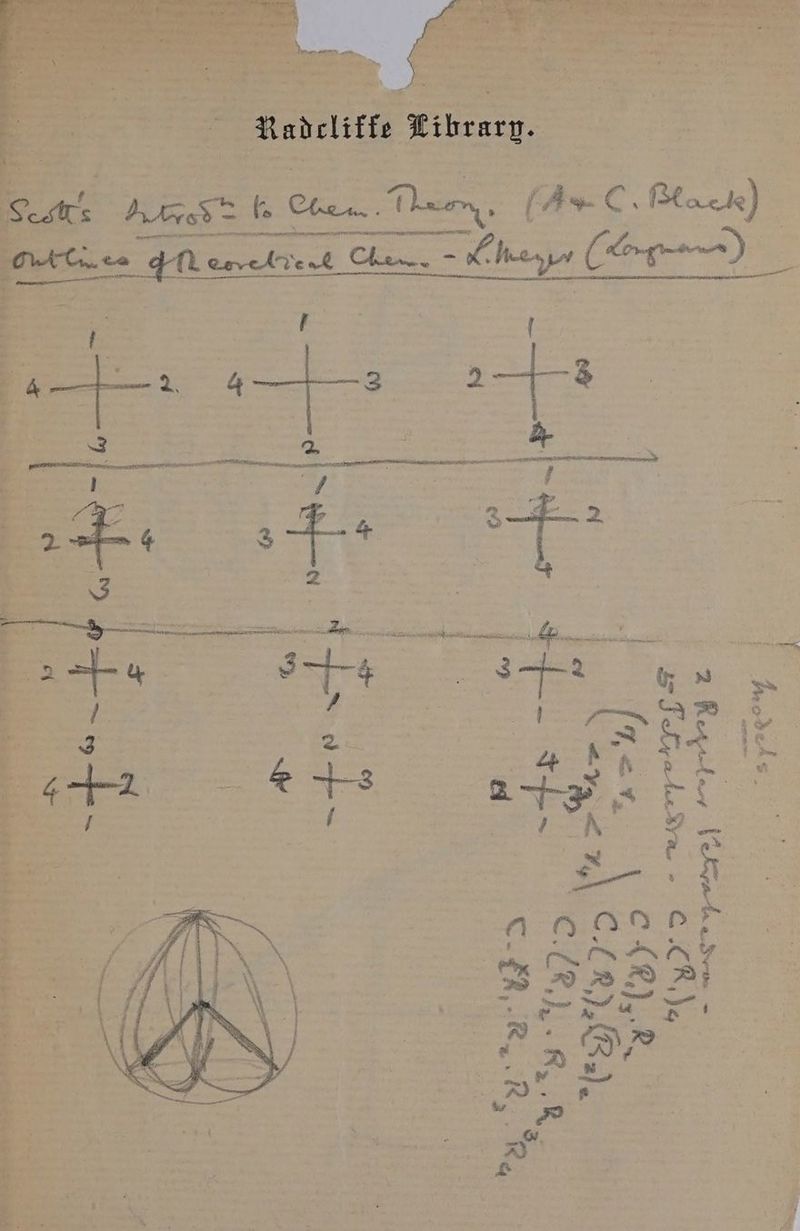 Radcliffe Library.
Scott's Introdn to Chem. Theory. (A & C. Black)
Outlines of Theoretical Chem. - L. Meyer (Longmans)
1 1 1
4 2. 4 3 2 3
3 2 4
1 1 1
2 4 3 4 3 2
3 2 4
3 2 4
2 4 3 4 3 2
1 1 1
3 2 4
4 2 4 3 2 3
1 1 1
Models.
2 Regular Tetrahedra -
5 Tetrahedra - C.(R1)4
C.(R1)3.R2
C.(R1)2(R2)2
C.(R1)2.R2.R3
C.R1.R2.R3.R4
(r1 < r2
< r3 < r4)